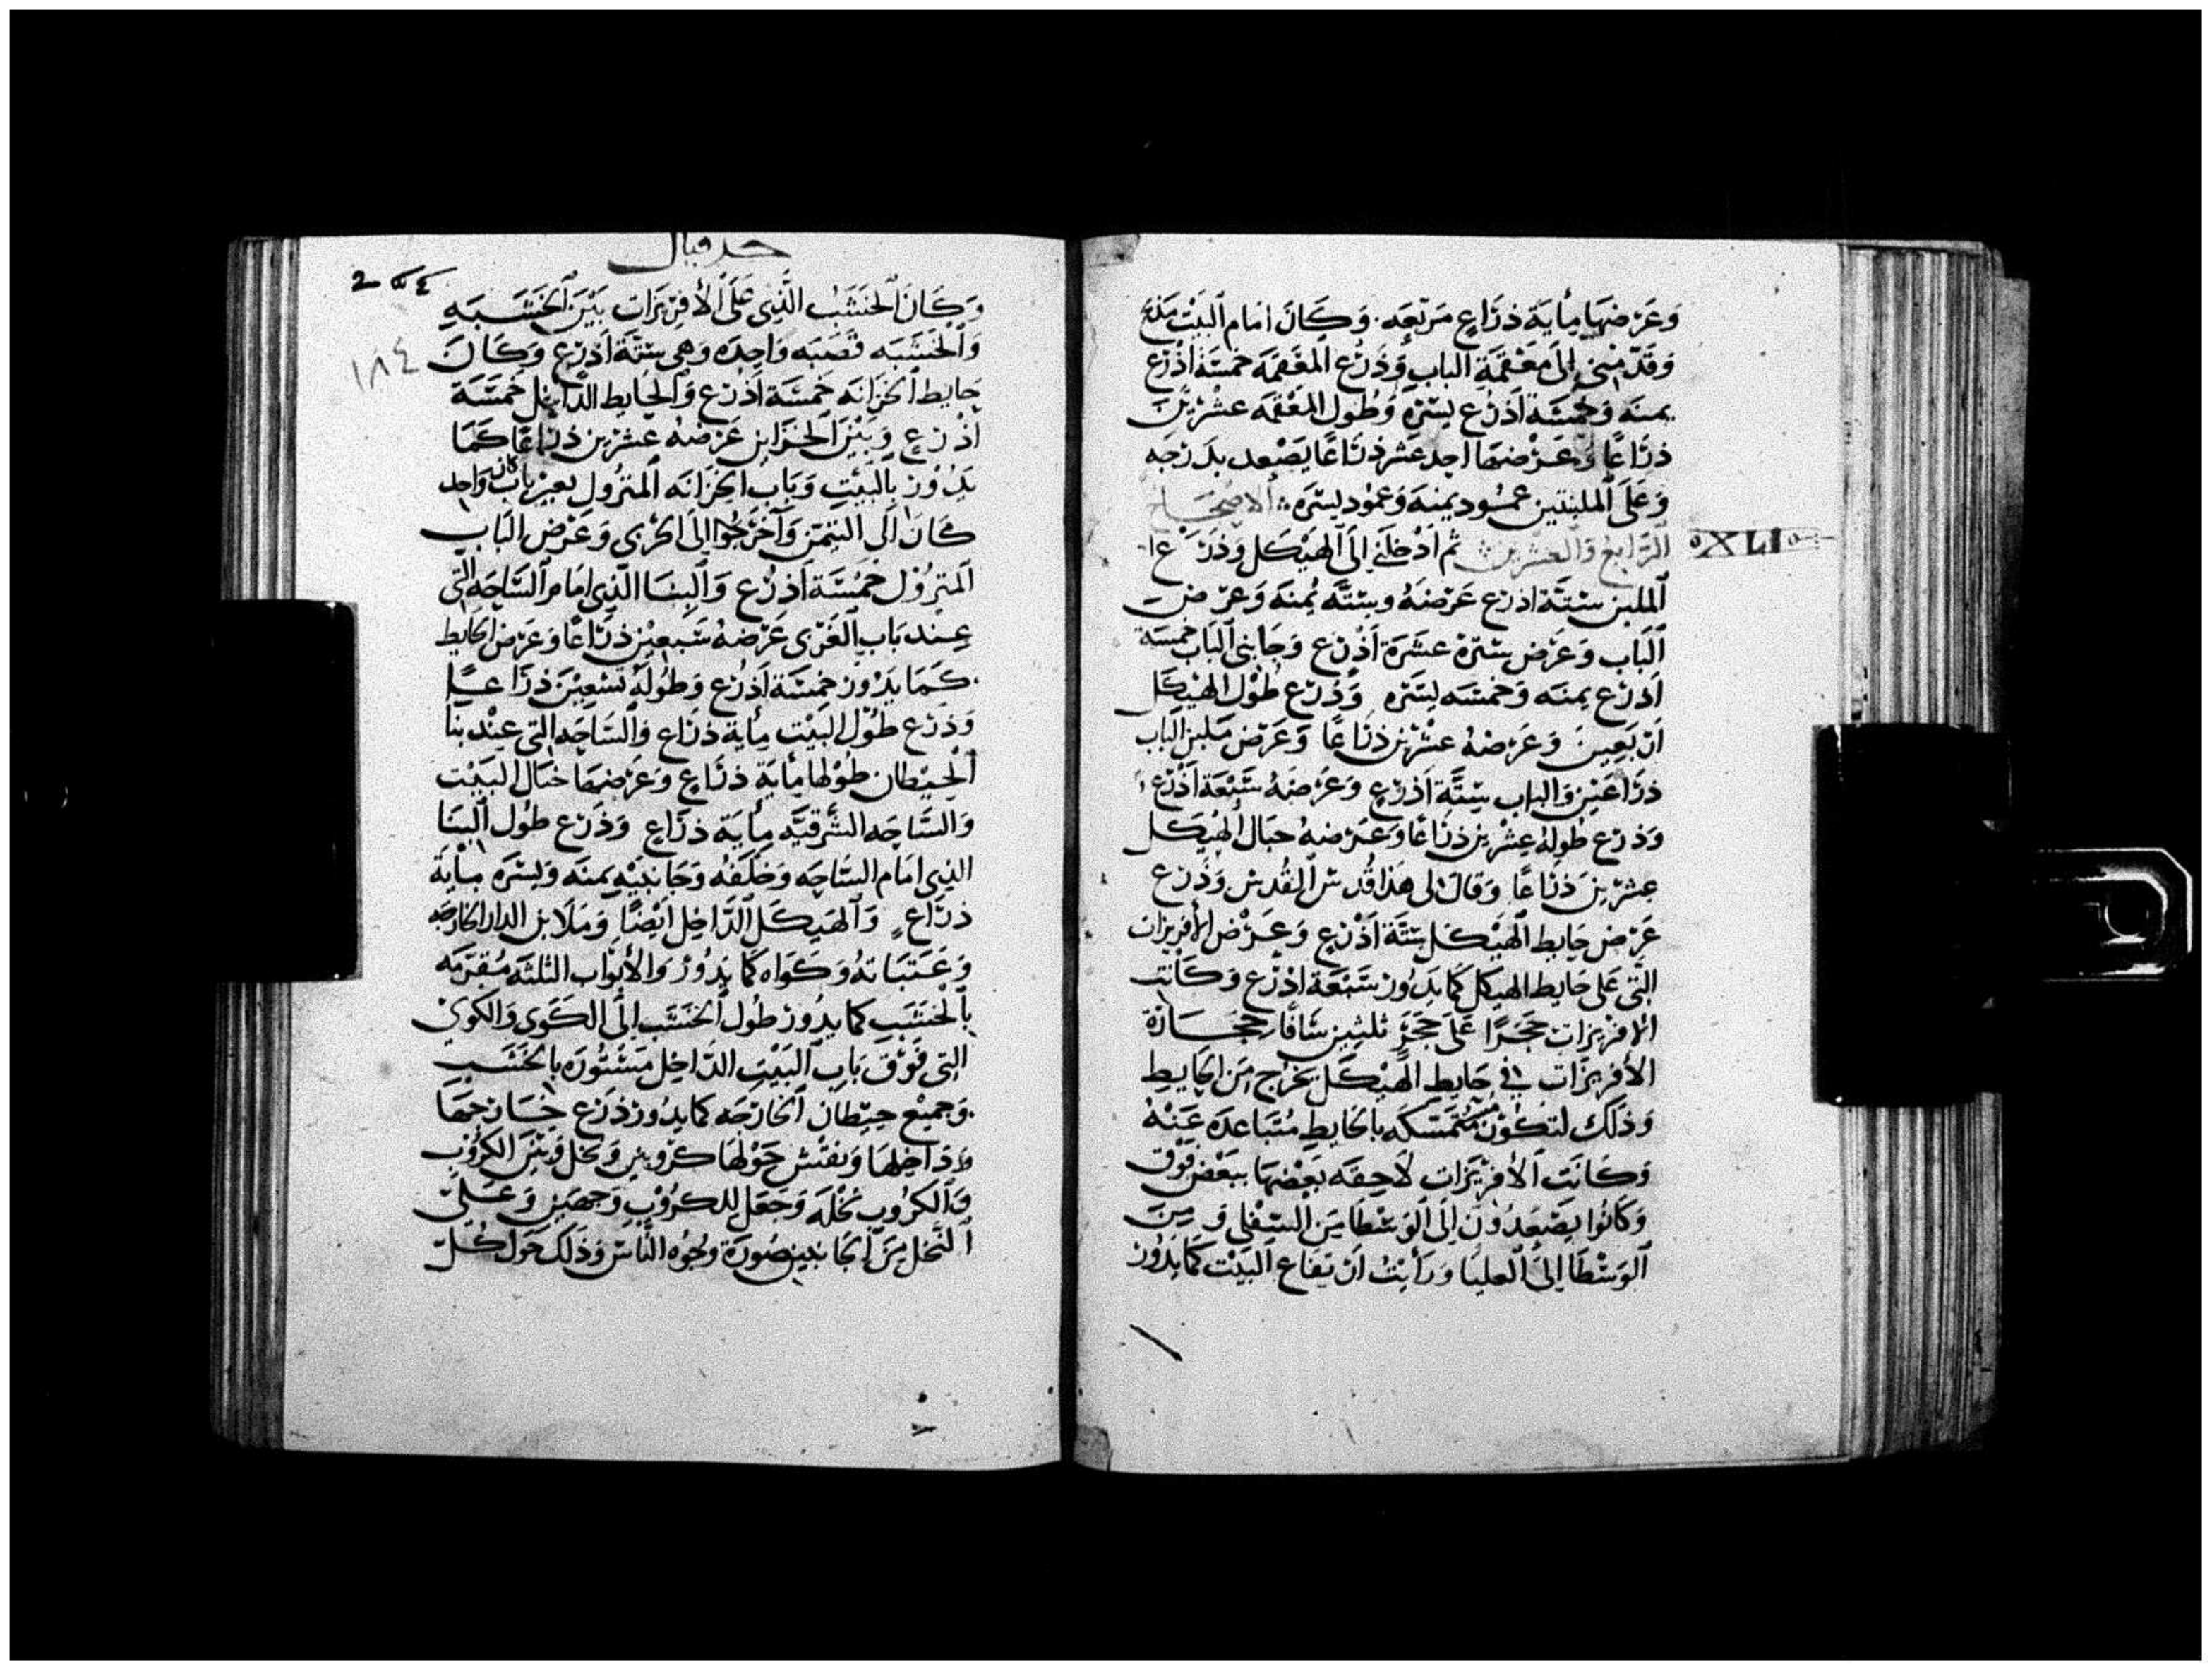 وَعَرْضهَا مِأيَة ذرَاعٍ مَربّعَه. وَكَانَ امَام البَيْت مَذبَح
وَقَدّمَني إلىَ مَعْقمَةِ البابِ وَذَرَع المعْقمَه خمسَة اذْرُع
يمنَه وَخمْسَة اَذرُع يسْرَه وَطُول المعْقمَه عشْرِيْنَ
ذرَاعًا وَعَرْضهَا احِد عَشر ذرَاعًا يَصْعد بدَرَجَه
وَعَلىَ الملبنتين عمُود يمنه وَعمُود يسْرَه ؞ الاصْحَاح
الرّابعُ وَالعشْرين ؞ ثم اَدْخلَنَي إلىَ الهَيْكل وَذَرَع
XLI
الملبن ستَّة اذرُع عَرْضهُ وستَّه يُمنَه وَعرْضَ
البَاب وَعَرْض سترهْ عشَرَة اَذْرُع وَجَابني البَاب خمسَة
اَذرُع يمنَه وَخمسَه ليسْرَه وَذَرَع طُوْل الهَيْكَل
ارْبَعِينَ وَعَرْضهُ عشْرين ذرَاعًا وَعَرْض مَلبَن الباب
ذرَاعَيْن وَالباب ستَّة اَذرُعٍ وَعَرْضَهُ سَبْعَة اَذْرُع
وَذرَع طُولهُ عِشْرِين ذرَاعًا وَعَرْضهُ حيَال الهَيْكل
عِشرِينَ ذرَاعًا وَقالَ لى هَذا قُدس القُدسْ وَذَرَع
عَرْض حَايط الهَيْكَل ستَّة اَذْرُعٍ وَعَرْض الأفريزات
التي عَلى حَايط الهيكل كمَا يَدُور سَبْعَة اذْرُع وَكَانت
الافريزات حَجَرًا عَلىَ حَجَرٍ ثلثين سَافًا حجَارَة
الأفريْزات في حَايط الهَيْكَل يخرُج مِن الحَايط
وَذلكَ لتكُوْن مُتمَسّكَه بالحَايط مُتَبَاعدَه عَنْهُ
وَكَانَت الأفرْيزَات لاَحِقَه بَعْضهَا ببَعْض فوْق
وَكَانُوا يَصْعَدُوْن إلىَ الوَسْطَا مِنَ السّفلى وَمِنَ
الوَسْطَا إلىَ العليَا وَرَأيْتُ ارْتفَاع البَيْت كمَا يَدُوْر
حزقيال
١٨٤
وَكَانَ الخَشَب الَّذي عَلىَ الأفريْزات بَيْنَ الخَشَبَه
وَالخَشَبَه قصَبَه وَاحِدَه وَهِي ستَّة اَذرُعٍ وَكَانَ
حَايط الخزَانَه خَمْسَة اَذرُع وَالحَايط الدَّاخِل خَمْسَة
اَذْرُعٍ وَبَيْنَ الخزَاين عَرْضهُ عشرْين ذرَاعًا كمَا
يَدُوْر بالبَيْتِ وَبَاب الخزَانَه المتْرُول بعير باب كان وَاحِد
كَانَ إلى التيمَن وَآخر جُوا إلىَ اخرى وَعَرْض البَاب
المترُوْل خَمْسَة اَذرُع وَالبنَا الذي امَام السَّاحَه التي
عِند بَاب الغَرْبى عَرْضهُ سَبعيْن ذرَاعًا وَعَرْض الحَايط
كمَا يَدُوْر خَمْسَة اَذرُع وَطُولهُ تسْعِيْنَ ذرَاعًا
وَذرَع طُوْل البَيْت مِأية ذرَاع وَالسّاحَه التي عِنْد بنَا
الحيْطان طُوْلها مِأيَة ذرَاعٍ وَعَرْضهَا حيَال البَيْت
وَالسَّاحَه الشَّرقيَّه مِأيَة ذرَاعٍ وَذَرَع طُول البنَا
الذِى امَام السَّاحَه وَخَلفَه وَجَانبَيْهِ يمنَه وَيسْرَه مِأيَة
ذرَاعٍ وَالهَيكَل الدَّاخِل اَيْضًا وَمَلابن الدار الخارجَه
وَعَتبَاته وَكَوَاه كمَا يَدُوْر وَالأبوَاب الثلثه مُقرَمَه
بالخشَب كما يدُوْر طُول الخشَب إلىَ الكَوَى وَالكوى
التي فَوْق بَاب البَيْت الدَّاخِل مَسْتُوْرَه بالخشَب
وَجميْع حيْطان الخارجَه كما يَدُوْر ذرَع خَارجهَا
وَدَاخِلهَا وَنقش حَوْلهَا كرُوبين وَنخل وَبَيْنَ الكرُوْب
وَالكرُوب نخْلَه وَجَعَل للكرُوْب وَجهَيْن وَعَلىَ
النَّخل مِنَ الجَانبين صُورَة وجُوْه النَّاس وَذَلك حَوْل كُلّ